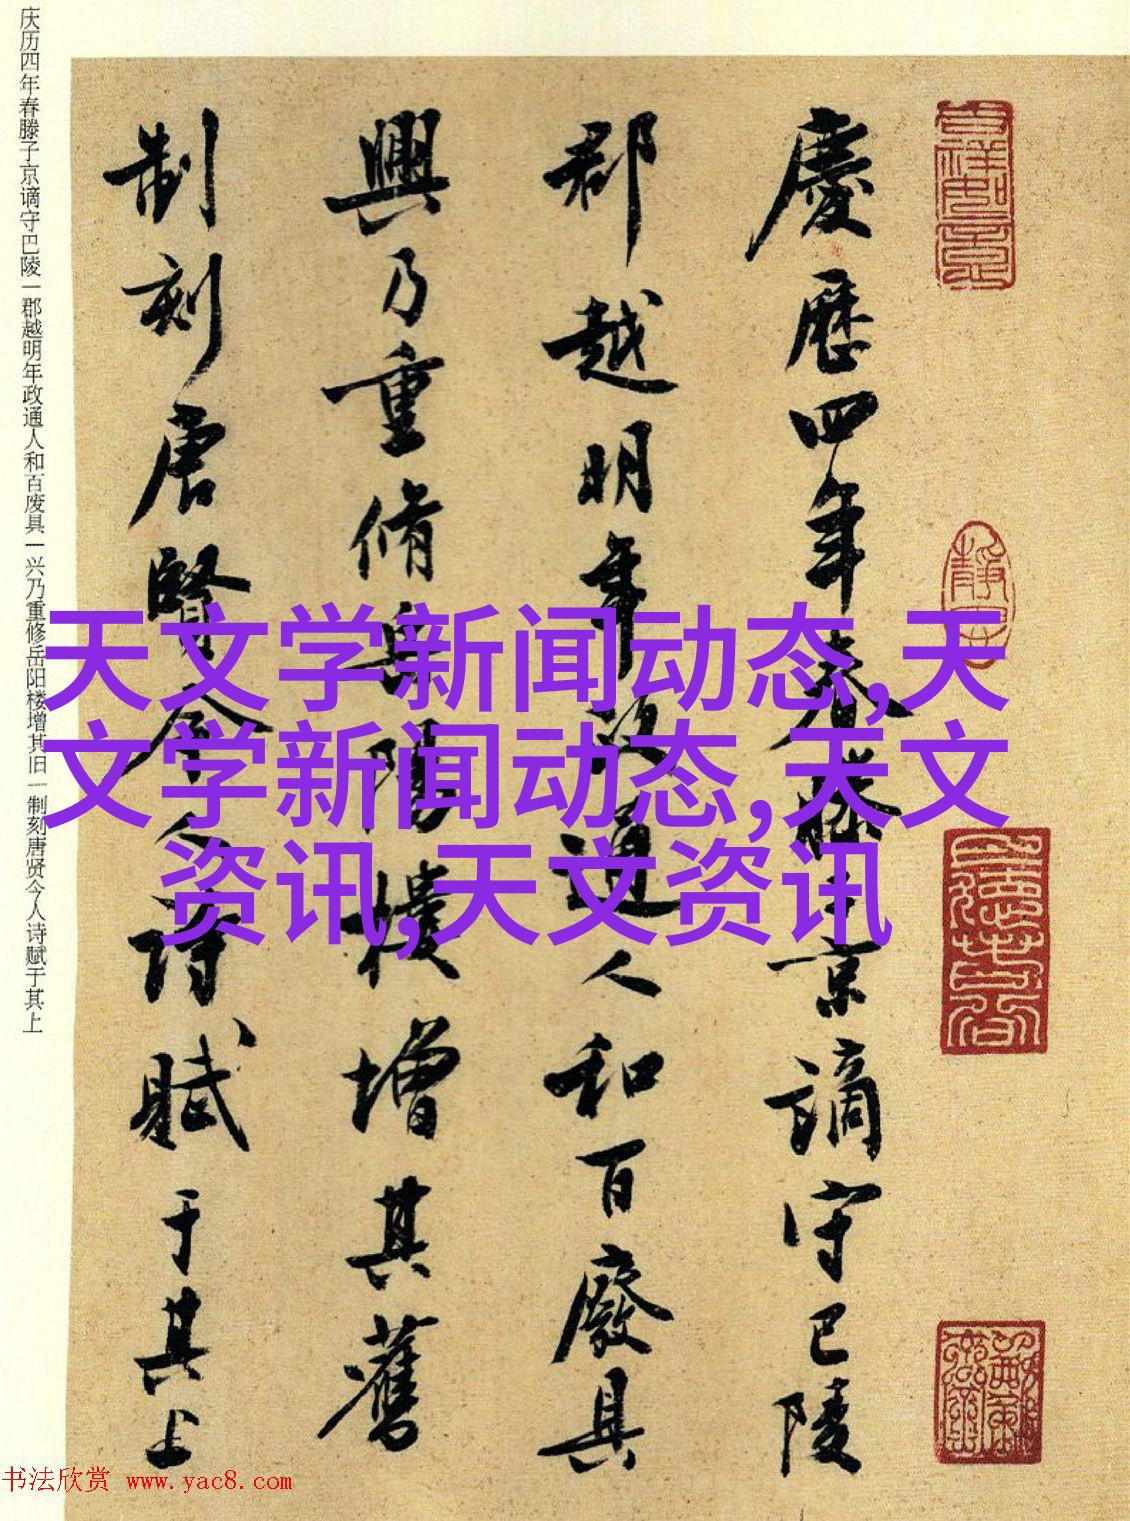 庆历四年春滕子京谪守巴陵一郡越明年政通人和百废具一兴乃重修岳阳楼增其旧一制刻唐贤今人诗赋于其上
慶歷四年春滕子京謫守巴陵
郡越明年政通人和百廢具
興乃重脩岳陽樓增其舊
制刻唐賢今人詩賦于其上
天文学新闻动态,天
文学新闻动态,天文
资讯,天文资讯
书法欣赏 www.yac8.com